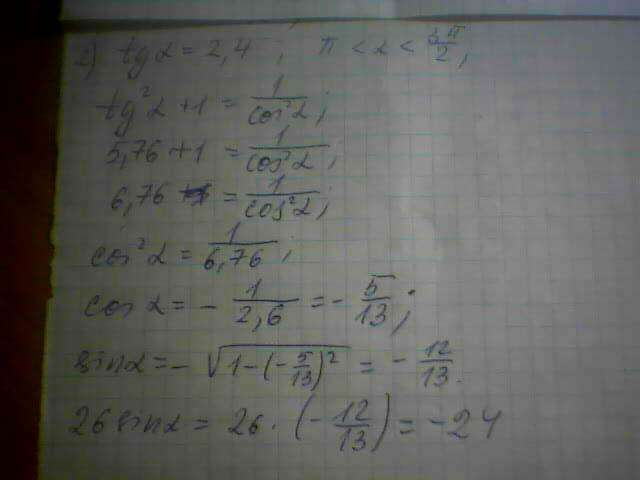 2) tg α = 2,4 ; π < α < 3π/2 ;
tg²α + 1 = 1/cos²α ;
5,76 + 1 = 1/cos²α ;
6,76 = 1/cos²α ;
cos²α = 1/6,76 ;
cos α = - 1/2,6 = - 5/13 ;
sin α = - √(1 - (- 5/13)²) = - 12/13 .
26 sin α = 26 · (- 12/13) = -24